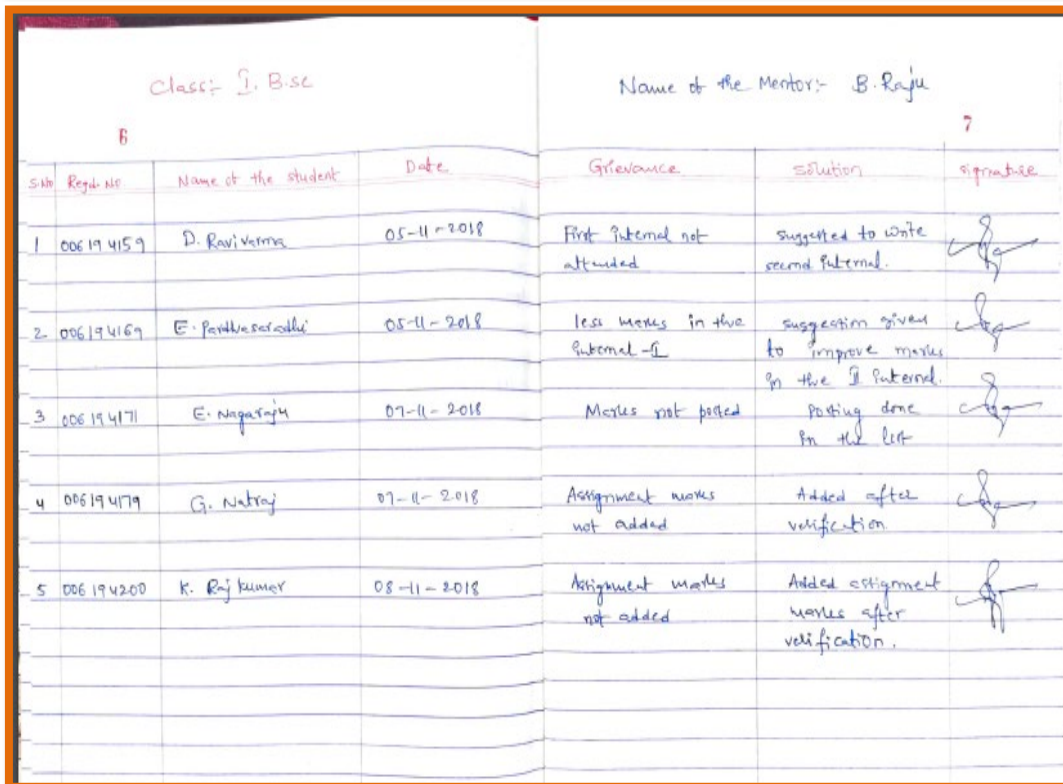 Class:- I. B.sc
Name of the Mentor:- B. Raju
6
7
S.No Regd. No Name of the student Date Grievance solution signature
1 006194159 D. Ravi varma 05-11-2018 First internal not suggested to write
attended second internal.
2 006194169 E. Pardhasaradhi 05-11-2018 less marks in the suggestion given
internal -I to improve marks
in the II internal.
3 006194171 E. Nagaraju 07-11-2018 Marks not posted Posting done
in the list
4 006194179 G. Natraj 07-11-2018 Assignment marks Added after
not added verification
5 006194200 K. Raj kumar 08-11-2018 Assignment marks Added assignment
not added marks after
verification.